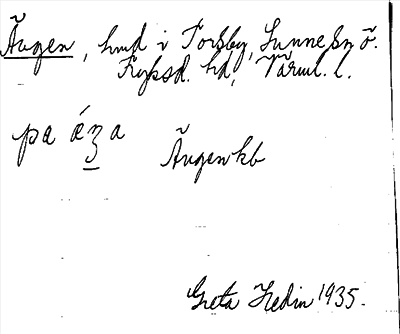 Ängen, hmd i Torsby, Sunne sn ö.
Fryksd. hd, Värml. l.
pa ǽʒa
Ängen kb
Greta Hedin 1935.